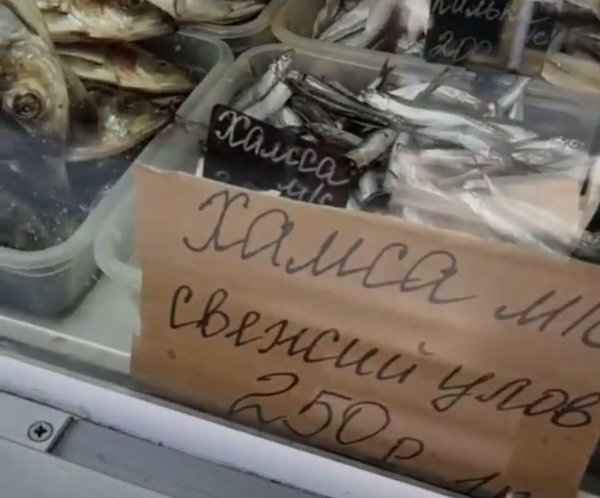 килька
200
Хамса
м/с
Хамса м/с
свежий улов
250р